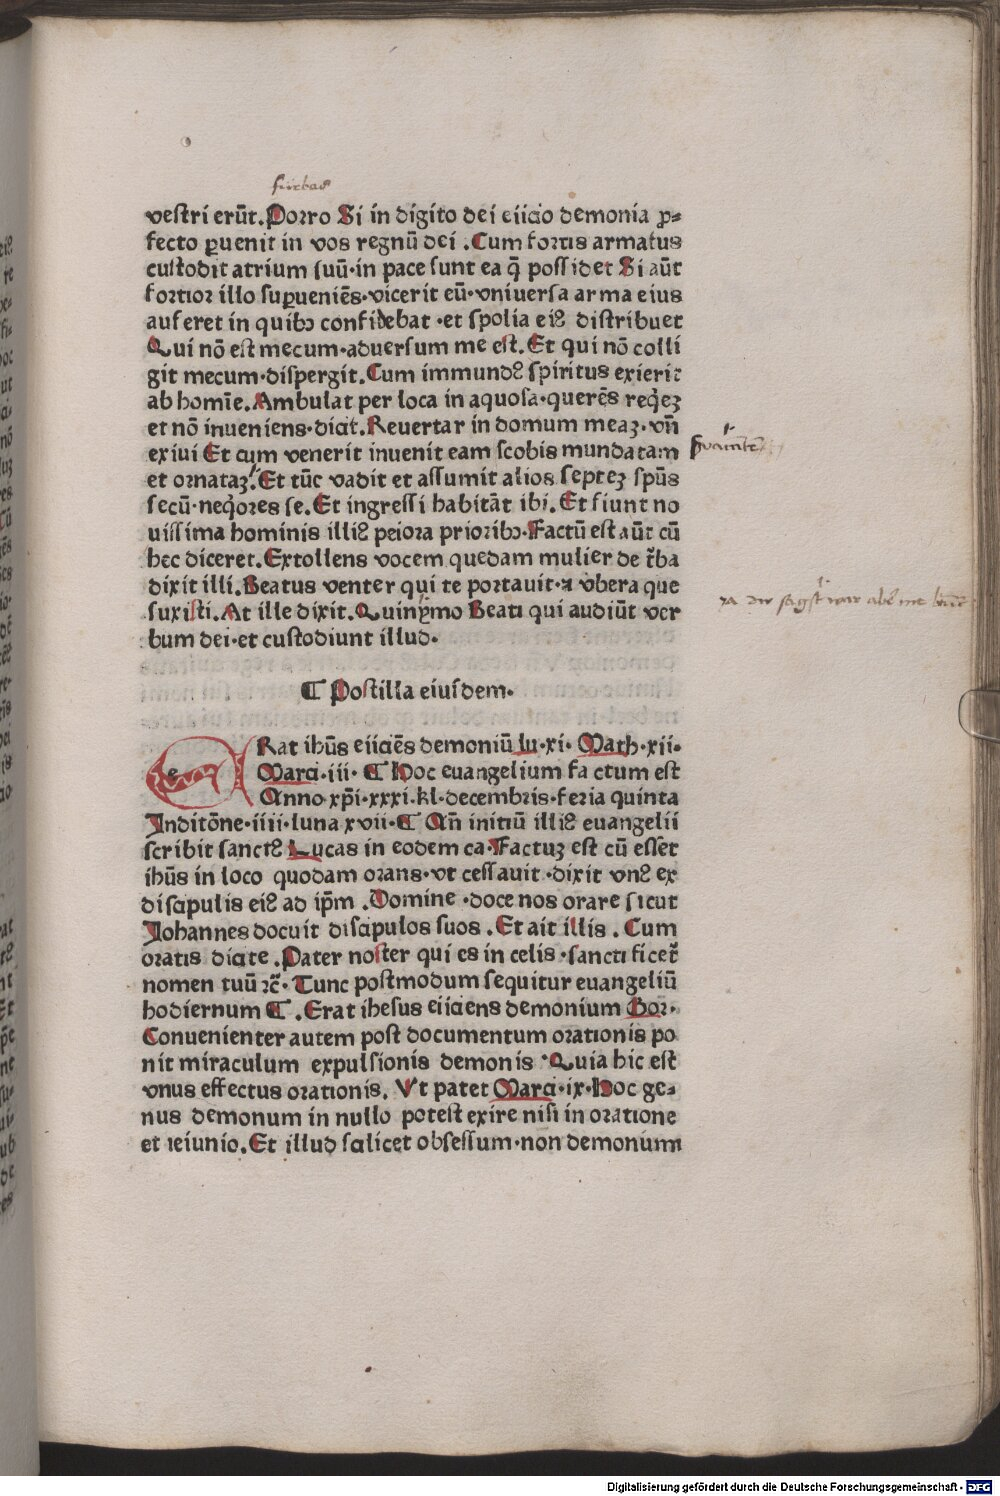 fürbas
vestri erūt. Porro Si in digito dei eiicio demonia ꝓ⸗
fecto ꝑuenit in vos regnū dei . Cum fortis armatus
custodit atrium suū·in pace sunt ea q̄ possidet Si aūt
fortior illo suꝑueniēs·vicerit eū·vniuersa arma eius
auferet in quibꝫ confidebat ·et spolia eiꝰ distribuet
Qui nō est mecum·aduersum me est. Et qui nō colli
git mecum·dispergit. Cum immundꝰ spiritus exierit
ab homīe. Ambulat per loca in aquosa·querēs reqēꝫ
et nō inueniens·dicit. Reuertar in domum meaꝫ·vn̄
exiui Et cum venerit inuenit eam scobis mundatam
et ornataꝫ. Et tūc vadit et assumit alios septeꝫ spūs
secū·neqores se. Et ingressi habitāt ibi. Et fiunt no
uissima hominis illiꝰ peiora prioribꝫ·Factū est aūt cū
hec diceret. Extollens vocem quedam mulier de t̄ba
dixit illi. Beatus venter qui te portauit·⁊ vbera que
suxisti. At ille dixit. Quinymo Beati qui audiūt ver
bum dei·et custodiunt illud·
¶ Postilla eiusdem·
ERat ihūs eiiciēs demoniū lu·xi· Math·xii·
Marci·iii· ¶ Hoc euangelium factum est
Anno xp̄i·xxxi·kl·decembris·feria quinta
Inditōne·iiii·luna xvii·¶ An̄ initiū illiꝰ euangelii
scribit sanctꝰ Lucas in eodem ca·Factuꝫ est cū esset
ihūs in loco quodam orans·vt cessauit·dixit vnꝰ ex
discipulis eiꝰ ad ip̄m .Domine ·doce nos orare sicut
Johannes docuit discipulos suos . Et ait illis . Cum
oratis dicite . Pater noster qui es in celis·sanctificet̄
nomen tuū ⁊c̄· Tunc postmodum sequitur euangeliū
hodiernum ¶ .Erat ihesus eiiciens demonium Gor·
Conuenienter autem post documentum orationis po
nit miraculum expulsionis demonis ·Quia hic est
vnus effectus orationis. Vt patet Marci·ix·Hoc ge⸗
nus demonum in nullo potest exire nisi in oratione
et ieiunio. Et illud scilicet obsessum·non demonum
Digitalisierung gefördert durch die Deutsche Forschungsgemeinschaft - DFG